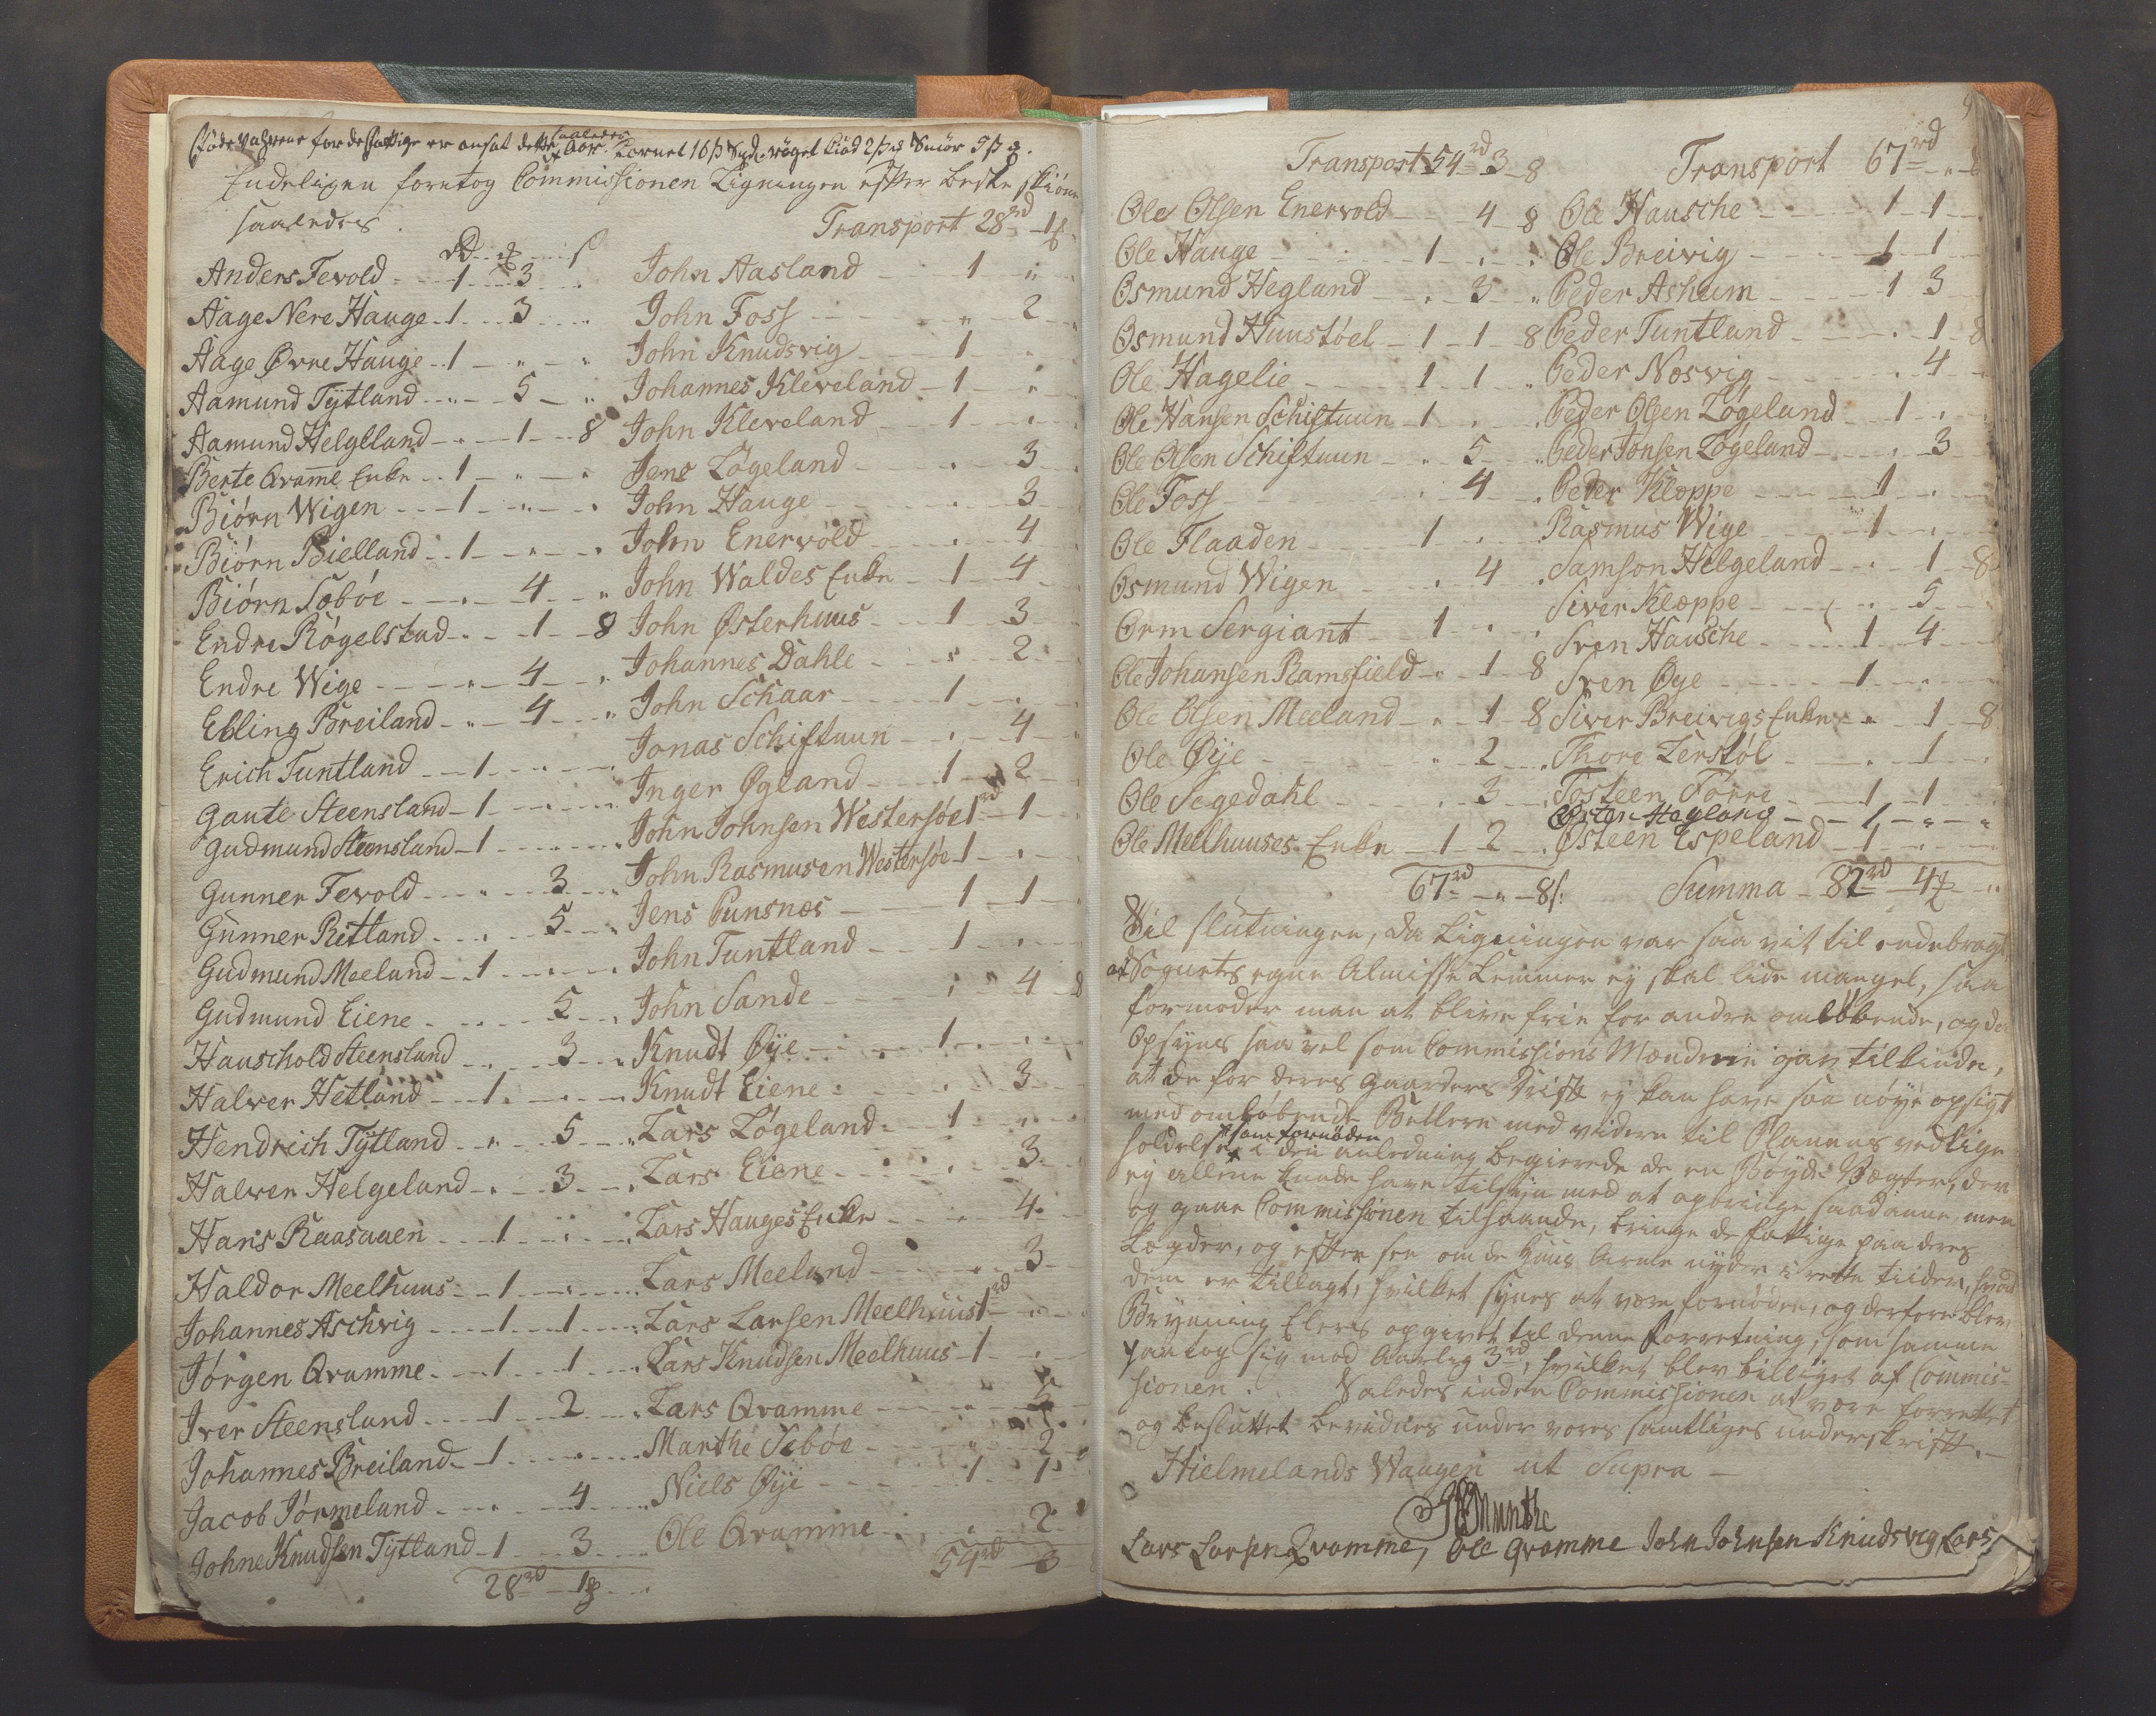 Födevahrene for de fattige er ansat dette Aar saaledes Kornet 16 ß røget Kiød 2 ß Smør 5 ß
Endeligen foretog Commissionen Ligningen efter beste skiøn
saaledes.
rd ß
Anders Fevold 1 3
Aage Nere Hauge 1 3
Aage Øvre Hauge 1 " "
Aamund Tÿtland " 5 "
Aamund Helgeland " 1 8
Berte Qvamme Enke 1 " "
Biørn Wigen 1 " "
Biørn Bielland 1 " "
Biørn Sæbøe " 4 "
Endre Røgelstad " 1 8
Endre Wige " 4 "
Ebling Breiland " 4 "
Erich Tuntland 1 " "
Gaute Steensland 1 " "
Gudmund Steensland 1 " "
Gunner Fevold " 3 "
Gunner Ritland " 5 "
Gudmund Meeland 1 " "
Gudmund Eiene " 5 "
Hauschold Steensland " 3 "
Halver Hetland 1 " "
Hendrich Tÿtland " 5 "
Halver Helgeland " 3 "
Hans Raasaaen 1 " "
Haldor Meelhuus 1 " "
Johannes Aschvig 1 1 "
Jørgen Qvamme 1 1 "
Iver Steensland 1 2 "
Johannes Breiland 1 " "
Jacob Jørmeland " 4 "
Johne Knudsen Tÿtland 1 3
28 rd 1
Transport 28 rd 1
John Aasland 1 "
John Foss " 2
John Knudsvig 1 "
Johannes Kleveland 1 "
John Kleveland 1 "
Jens Løgeland " 3
John Hauge " 3
John Enervold " 4
John Waldes Enke 1 4
John Østerhuus 1 3
Johannes Dahle " 2
John Schaar 1 "
Jonas Schiftuun " 4
Inger Øgland 1 2
John Johnsen Westersøe 1 rd 1
John Rasmusen Westersøe 1 "
Jens Punsnes 1 1
John Tuntland 1 "
John Sande " 4 8
Knudt Øÿe 1 "
Knudt Eiene " 3
Lars Løgeland 1 "
Lars Eiene " 3
Lars Hauges Enke " 4
Lars Meeland " 3
Lars Larsen Meelhuus 1 rd "
Lars Knudsen Meelhuus 1 "
Lars Qvamme " 5
Marthe Sebøe " 2
Niels Øÿe 1 1
Ole Qvamme " 2
54 rd 3
Transport 54 rd 3 8
Ole Olsen Enervold 4 8
Ole Hauge 1 " "
Osmund Hegland " 3 "
Osmund Huustøel 1 1 8
Ole Hagelie 1 1 "
Ole Hansen Schiftuun 1 " "
Ole Olsen Schiftuun " 5 "
Ole Foss " 4 "
Ole Flaaden 1 " "
Osmund Wigen " 4 "
Orm Sergiant 1 " "
Ole Johansen Ramsfield " 1 8
Ole Olsen Meeland " 1 8
Ole Øÿe " 2 "
Ole Segedahl " 3 "
Ole Meelhuuses Enke 1 2 "
67 rd " 8 ß
Transport 67 rd " 8
Ole Hausche 1 1
Ole Breivig 1 1
Peder Asheim 1 3
Peder Tuntland " 1 8
Peder Nesvig " 4
Peder Olsen Løgeland 1 "
Peder Jonsen Løgeland " 3
Peder Kleppe 1 "
Rasmus Wige 1 "
Samson Helgeland " 1 8
Siver Kleppe " 5
Sven Hausche 1 4
Sven Øye 1 "
Siver Breivigs Enke " 1 8
Thore Lerstøl " 1
Tosteen Førre 1 1
Østen Hegland 1 " "
Østeen Espeland 1 "
Summa 82 rd 4
Til slutningen, da Ligningen var saa vit til endebragt,
at Sognets egne Almisse Lemmer ej skal lide mangel, saa
formoder man at blive frie for andre omløbende, og de
Opsyns saavel som Commissions Mændene gav tilkiende,
at de for deres Gaarders Drift ej kan have saa nøye opsigt
med omløbende Betlere med videre til Planens vedlige-
holdelse som fornøden i den anledning begierede de en Bøyde Vægter, der
ej allene kunde have tilsyn med at opbringe saadanne, men
og gaae Commissionen tilhaande, bringe de fattige paa deres
Lægder, og efter see om de Huus Arme nyder i rette tiider, hvad
dem er tillagt, hvilket synes at være fornøden, og derfore blev
Brynning Elers opgivet til denne Forretning, som samme
paatog sig mod Aarlig 3 rd, hvilket blev billiget af Commis-
sionen. Saaledes inden Commissionen at være forrettet
og besluttet bevidnes under vores samtliges underskrift.
Hielmelands Waagen ut Supra
Munthe
Lars Larsen Qvamme, Ole Qvamme John Johnsen Knudsvig Lars